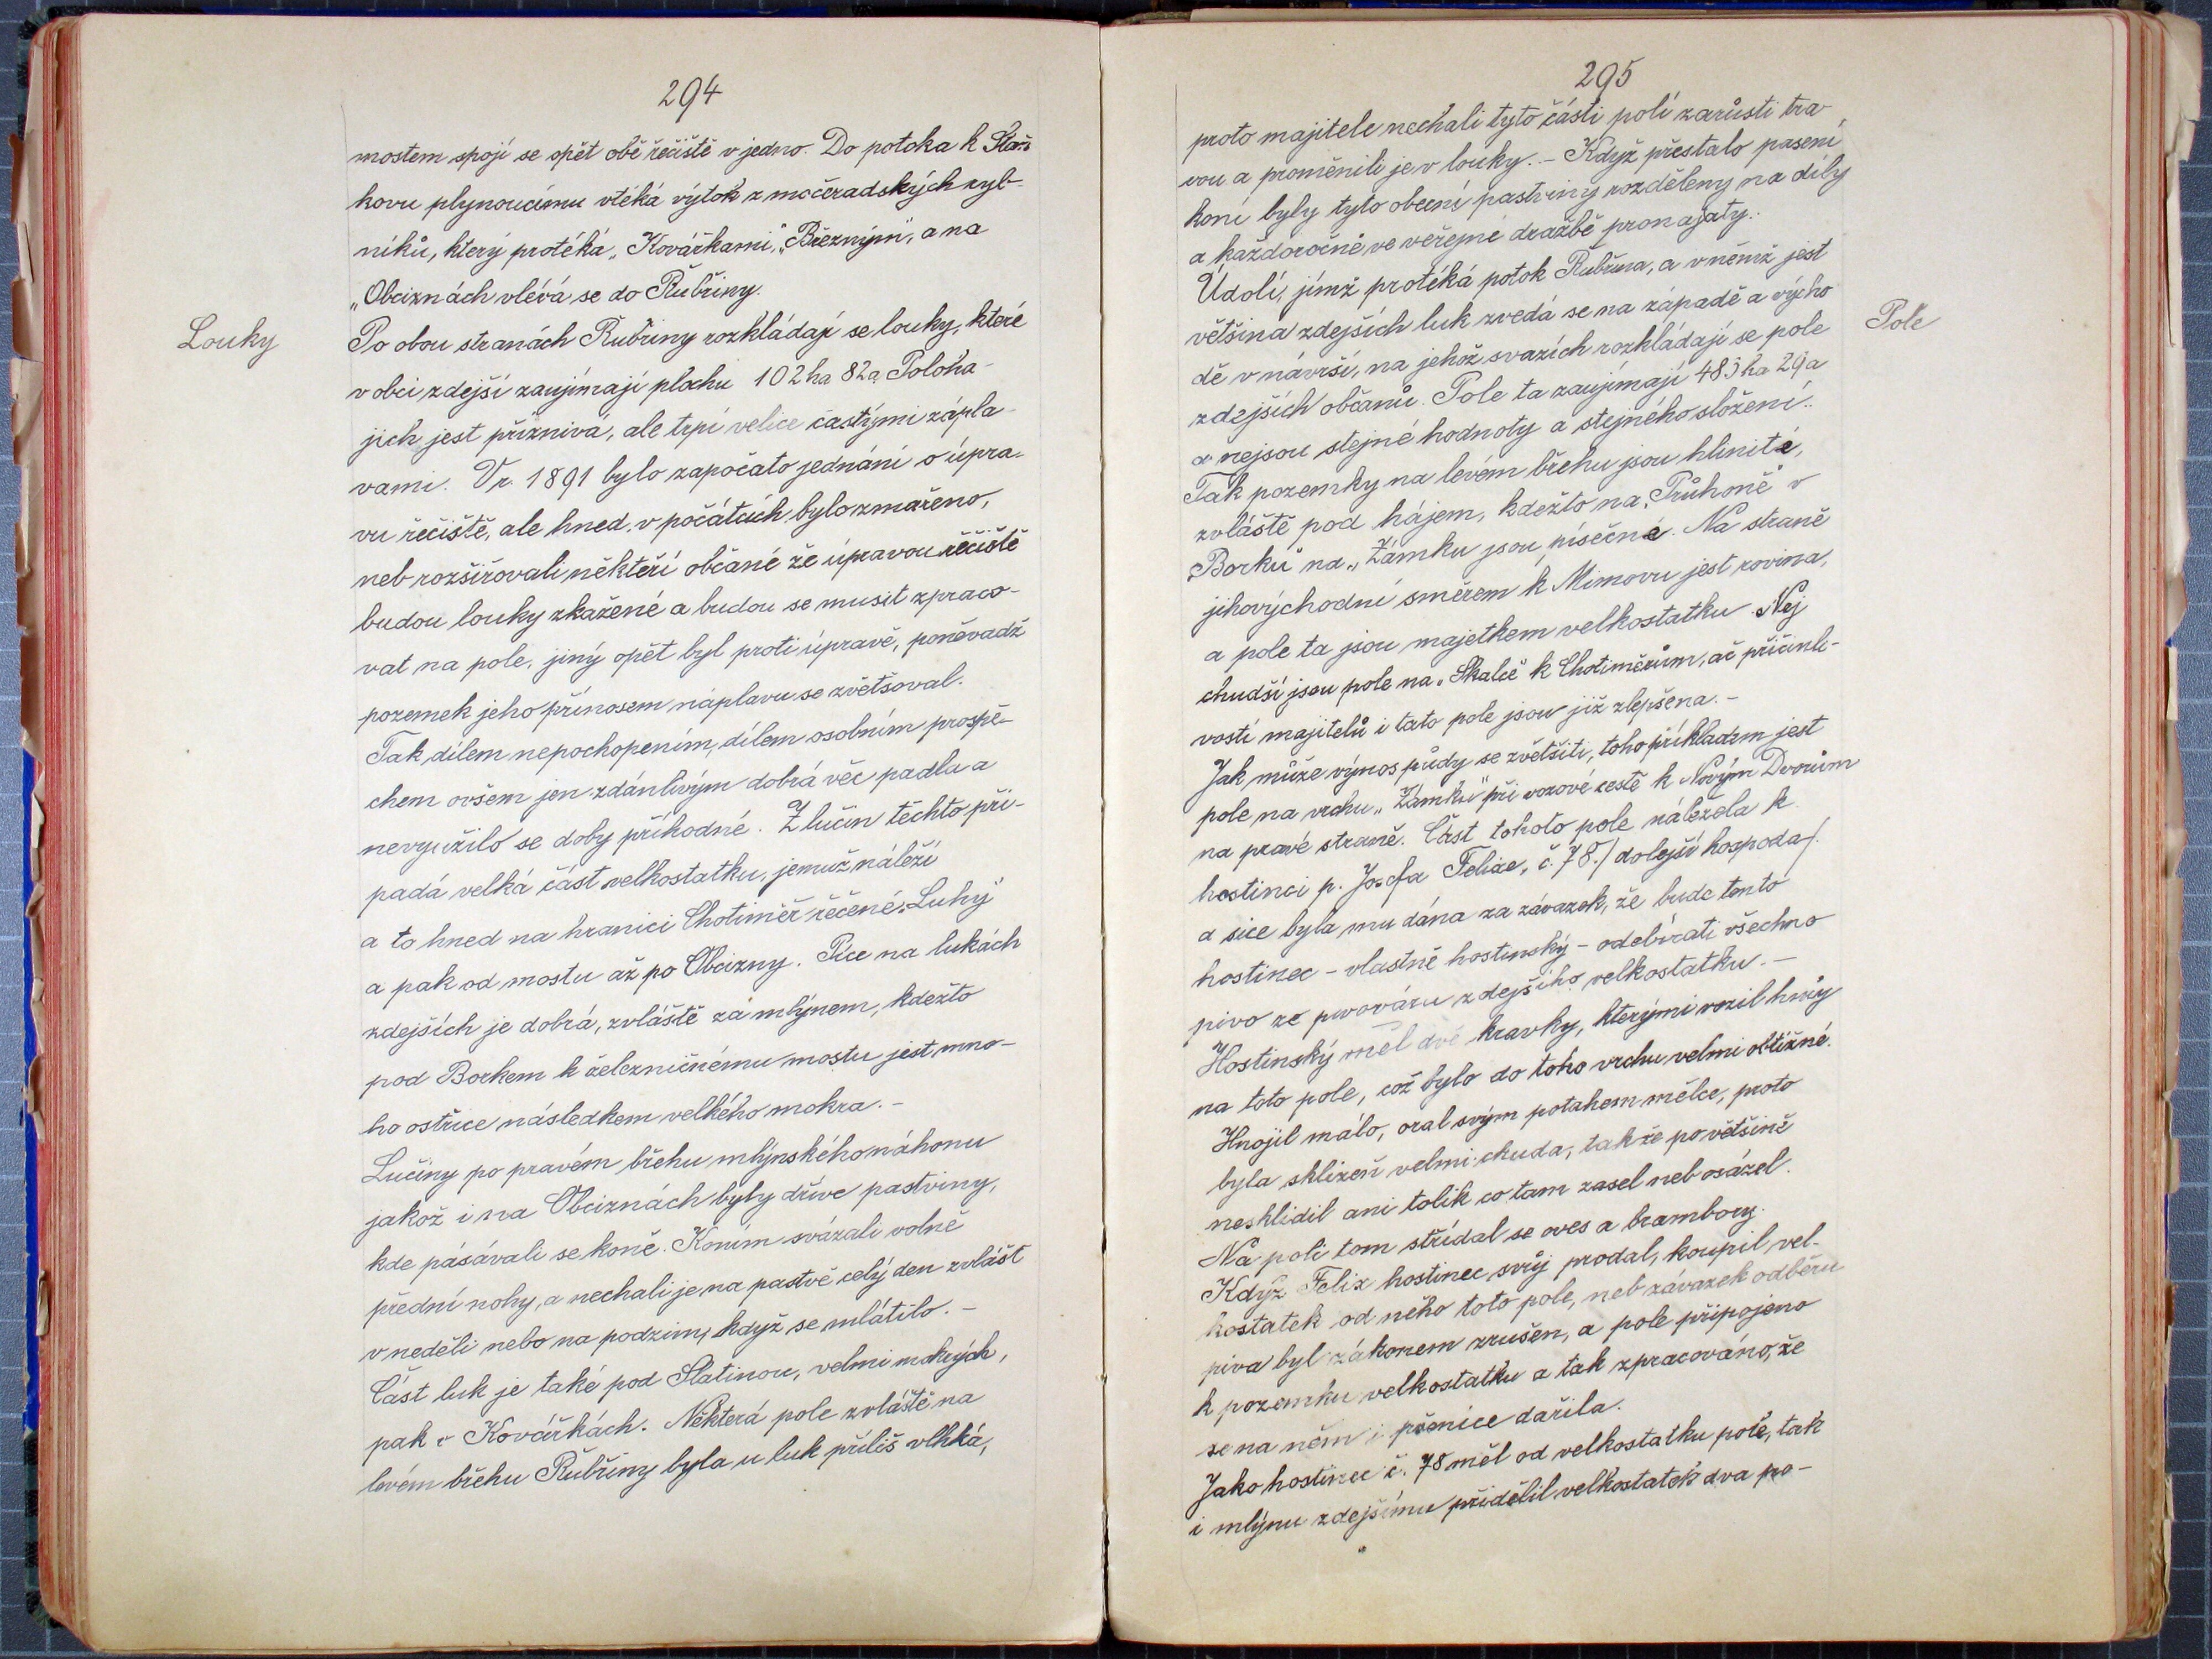 294
mostem spojí se opět obě řečiště v jedno. Do potoka k Staň-
kovu plynoucímu vtéká výtok z močeradských ryb-
níků, který protéká „Kovářkami", „Březným", a na
„Obciznách vlévá se do Řubřiny.
Louky
Po obou stranách Řubřiny rozkládají se louky, které
v obci zdejší zaujímají plochu 102 ha 82 a. Poloha
jich jest příznivá, ale trpí velice častými zápla-
vami. V r. 1891 bylo započato jednání o úpra-
vu řečiště, ale hned v počátcích bylo zmařeno,
neb rozšiřovali někteří občané že úpravou řečiště
budou louky zkažené a budou se musit zpraco-
vat na pole, jiný opět byl proti úpravě, poněvadž
pozemek jeho přínosem náplavu se zvětšoval.
Tak dílem nepochopením, dílem osobním prospě-
chem ovšem jen zdánlivým dobrá věc padla a
nevyužilo se doby příhodné. Z lučin těchto při-
padá velká část velkostatku, jemuž náleží
a to hned na hranici Chotiměř řečené „Luhy"
a pak od mostu až po Obcizny. Píce na lukách
zdejších je dobrá, zvláště za mlýnem, kdežto
pod Borkem k železničnému mostu jest mno-
ho ostřice následkem velkého mokra.-
Lučiny po pravém břehu mlýnského náhonu
jakož i na Obciznách byly dříve pastviny,
kde pásávali se koně. Koním svázali volně
přední nohy, a nechali je na pastvě celý den zvlášt
v neděli nebo na podzim, když se mlátilo.-
Část luk je také pod Slatinou, velmi mokrých,
pak v Kovářkách. Některá pole zvláště na
levém břehu Řubřiny byla u luk příliš vlhká,
295
proto majitele nechali tyto části polí zarůsti tra-
vou a proměnili je v louky.- Když přestalo pasení
koní byly tyto obecní pastviny rozděleny na díly
a každoročně ve veřejné dražbě pronajaty.
Údolí, jímž protéká potok Řubřina, a v němž jest
většina zdejších luk zvedá se na západě a výcho
Pole
dě v návrší, na jehož svazích rozkládají se pole
zdejších občanů. Pole ta zaujímají 483 ha 29 a
a nejsou stejné hodnoty a stejného složení.
Tak pozemky na levém břehu jsou hlinité,
zvláště pod hájem, kdežto na „Průhoně" v
„Borku" na „Zámku jsou písečné. Na straně
jihovýchodní směrem k Mimovu jest rovina,
a pole ta jsou majetkem velkostatku. Nej
chudší jsou pole na „Skalce" k Chotiměřům, ač přičinli-
vostí majitelů i tato pole jsou již zlepšena.-
Jak může výnos půdy se zvětšiti, toho příkladem jest
pole na vrchu „Zámku" při vozové cestě k Novým Dvorům
na pravé straně. Část tohoto pole náležela k
hostinci p. Josefa Felixe, č. 78./dolejší hospoda/.
a sice byla mu dána za závazek, že bude tento
hostinec - vlastně hostinský - odebírati všechno
pivo ze pivováru zdejšího velkostatku.-
Hostinský měl dvě kravky, kterými vozil hnůj
na toto pole, což bylo do toho vrchu velmi obtížné.
Hnojil málo, oral svým potahem mělce, proto
byla sklizeň velmi chuda, takže povětšině
nesklidil ani tolik co tam zasel neb osázel.
Na poli tom střídal se oves a brambory.
Když Felix hostinec svůj prodal, koupil vel-
kostatek od něho toto pole, neb závazek odběru
piva byl zákonem zrušen, a pole připojeno
k pozemku velkostatku a tak zpracováno, že
se na něm i pšenice dařila.
Jako hostinec č. 78 měl od velkostatku pole, tak
i mlýnu zdejšímu přidělil velkostatek dva po-